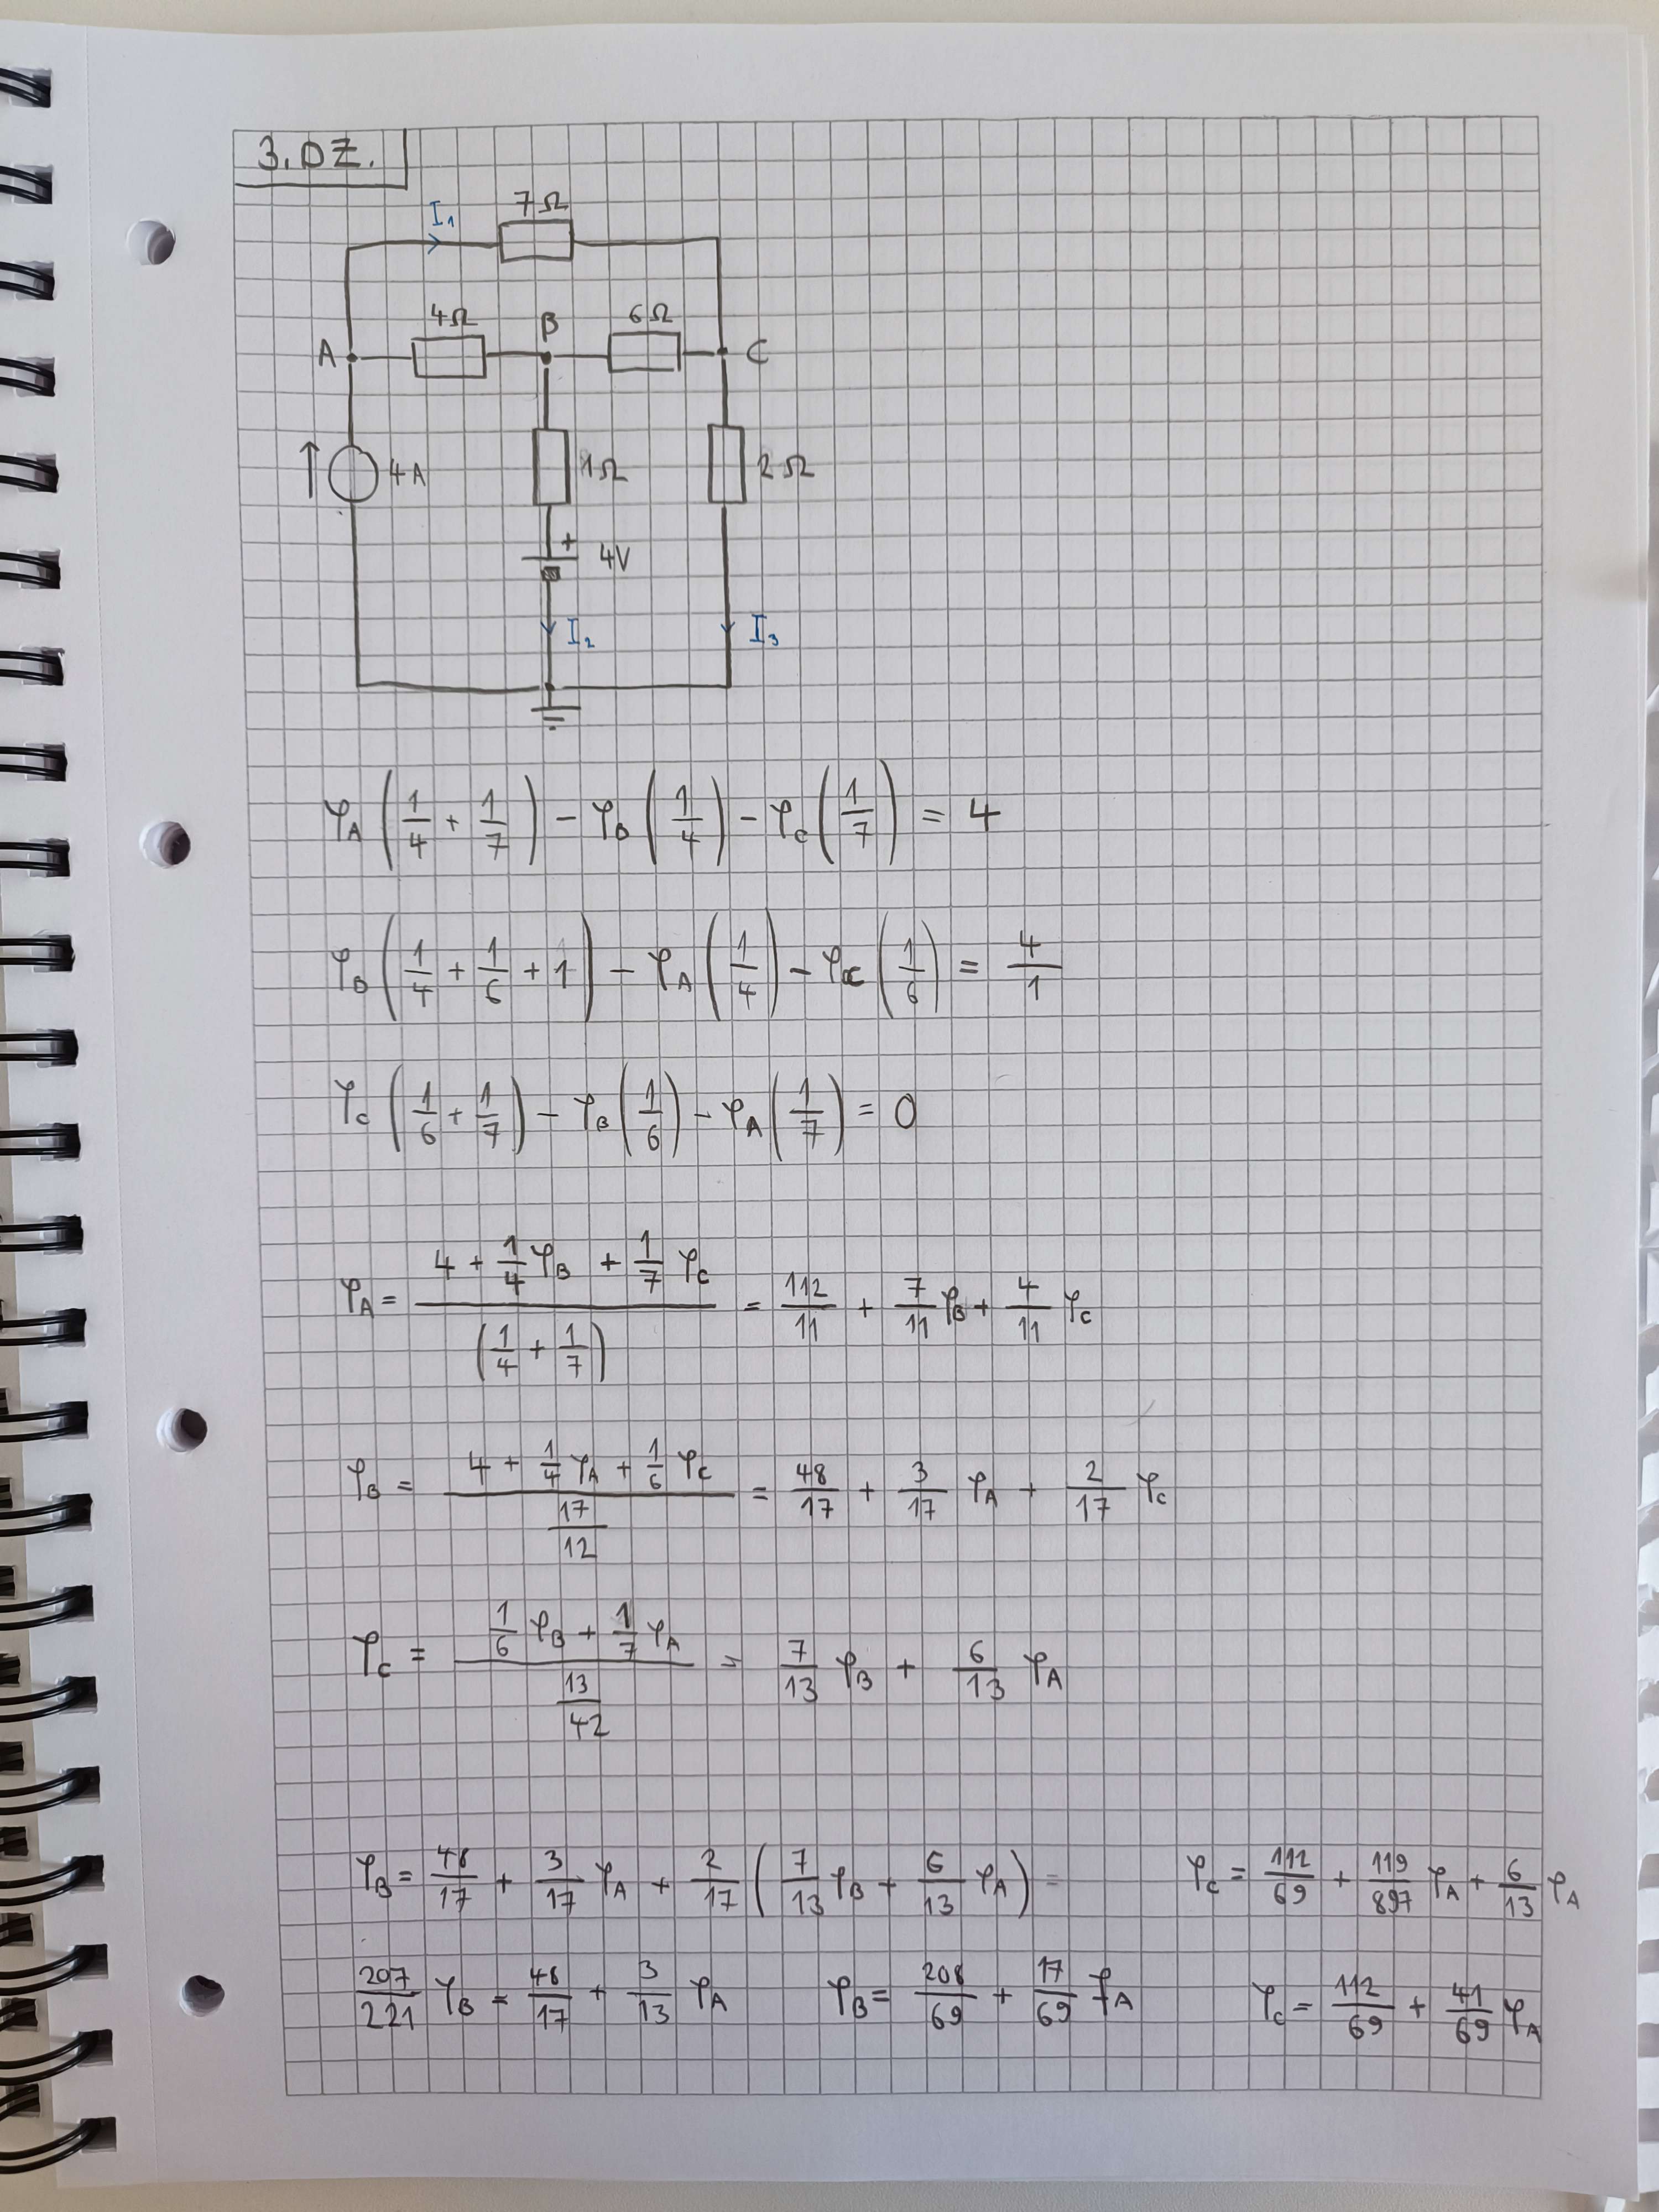 3. DZ.
7Ω
I₁
4Ω
B
6Ω
A
C
4A
1Ω
2Ω
+
4V
I₂
I₃
φA (1/4 + 1/7) - φB (1/4) - φC (1/7) = 4
φB (1/4 + 1/6 + 1) - φA (1/4) - φC (1/6) = 4/1
φC (1/6 + 1/7) - φB (1/6) - φA (1/7) = 0
φA = (4 + 1/4 φB + 1/7 φC) / (1/4 + 1/7) = 112/11 + 7/11 φB + 4/11 φC
φB = (4 + 1/4 φA + 1/6 φC) / (17/12) = 48/17 + 3/17 φA + 2/17 φC
φC = (1/6 φB + 1/7 φA) / (13/42) = 7/13 φB + 6/13 φA
φB = 48/17 + 3/17 φA + 2/17 (7/13 φB + 6/13 φA) =
φC = 112/69 + 119/897 φA + 6/13 φA
207/221 φB = 48/17 + 3/13 φA
φB = 208/69 + 17/69 φA
φC = 112/69 + 41/69 φA